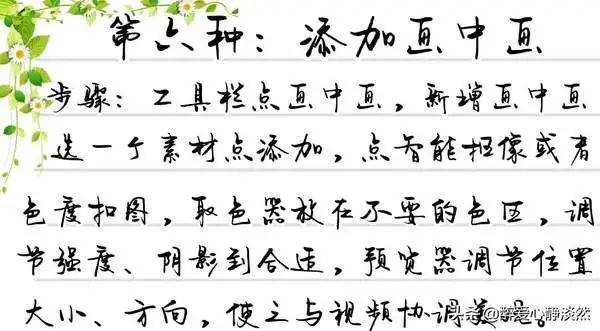 第六种：添加画中画
步骤：工具栏点画中画，新增画中画
选一个素材点添加，点智能抠像或者
色度扣图，取色器放在不要的色区，调
节强度、阴影到合适，预览器调节位置
大小、方向，使之与视频协调美观。
头条@醉爱心静淡然